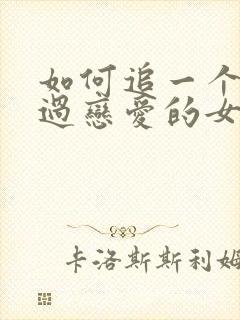 如何追一个
過戀愛的女
卡洛斯斯利姆